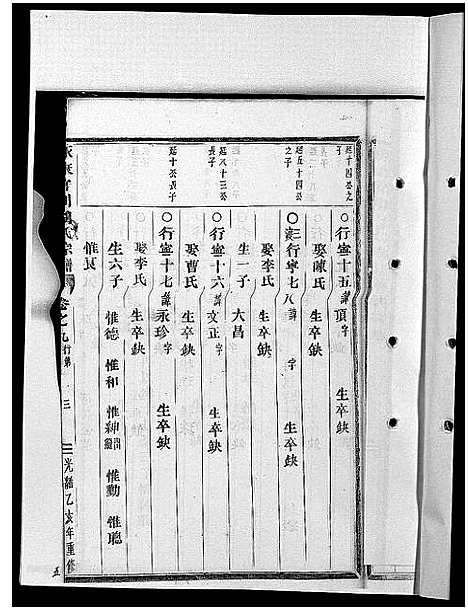 延十四公之
子
○行寧十五 諱頂 字 生卒缺
娶陳氏 生卒缺
延五十四公
之子
○行寧七 諱 字 生卒缺
娶李氏 生卒缺
生一子 大昌
延八十三公
長子
○行寧十六 諱文正 字 生卒缺
娶曹氏 生卒缺
延十公長子
○行寧十七 諱永珍 字 生卒缺
娶李氏 生卒缺
生六子 惟德 惟和 惟紳 惟勤 惟聰
惟良
氏宗譜 卷之九 行第 三 光緒乙亥年重修
五